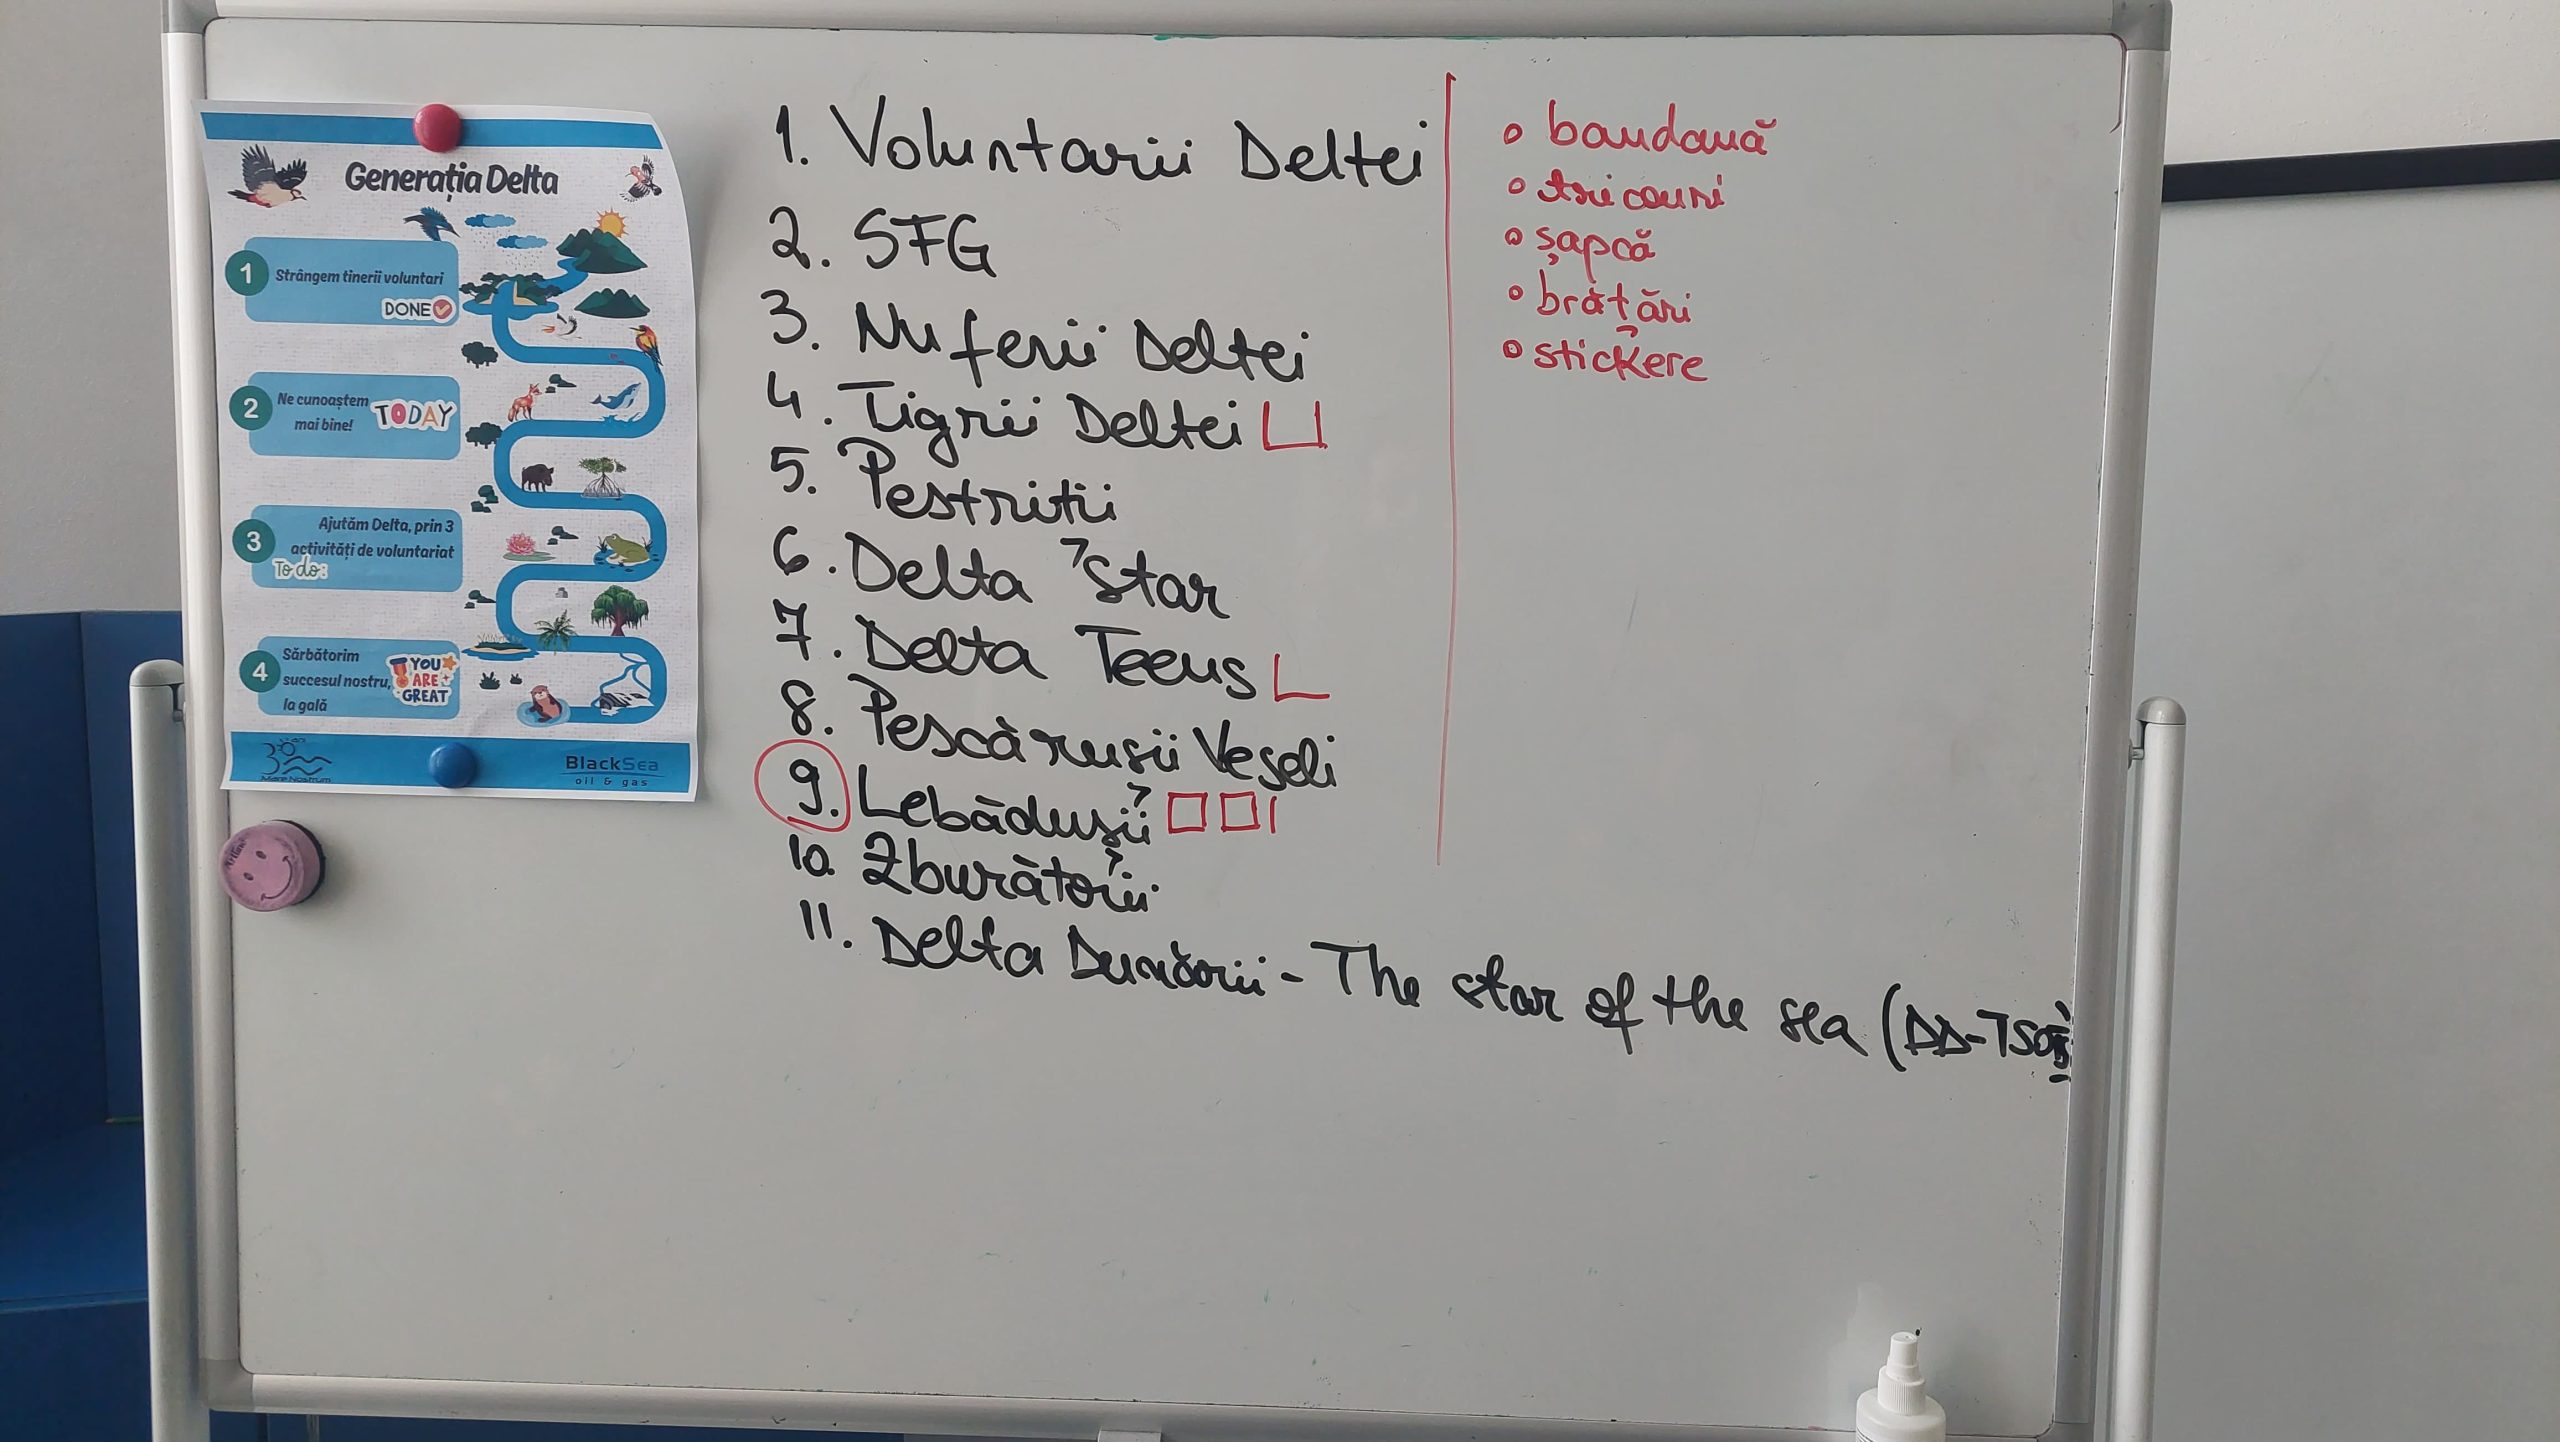 Generația Delta
1 Strângem tinerii voluntari
DONE
2 Ne cunoaștem
mai bine!
TODAY
3 Ajutăm Delta, prin 3
activități de voluntariat
To do:
4 Sărbătorim
succesul nostru,
la gală
YOU
ARE
GREAT
Mare Nostrum
BlackSea
oil & gas
1. Voluntarii Deltei
2. SFG
3. Nuferii Deltei
4. Tigrii Deltei
5. Pestriții
6. Delta Star
7. Delta Teens
8. Pescărușii Veseli
9. Lebădușii
10. Zburătorii
11. Delta Dunării - The star of the sea (DD-TSOTS)
• bandană
• tricouri
• șapcă
• brățări
• stickere